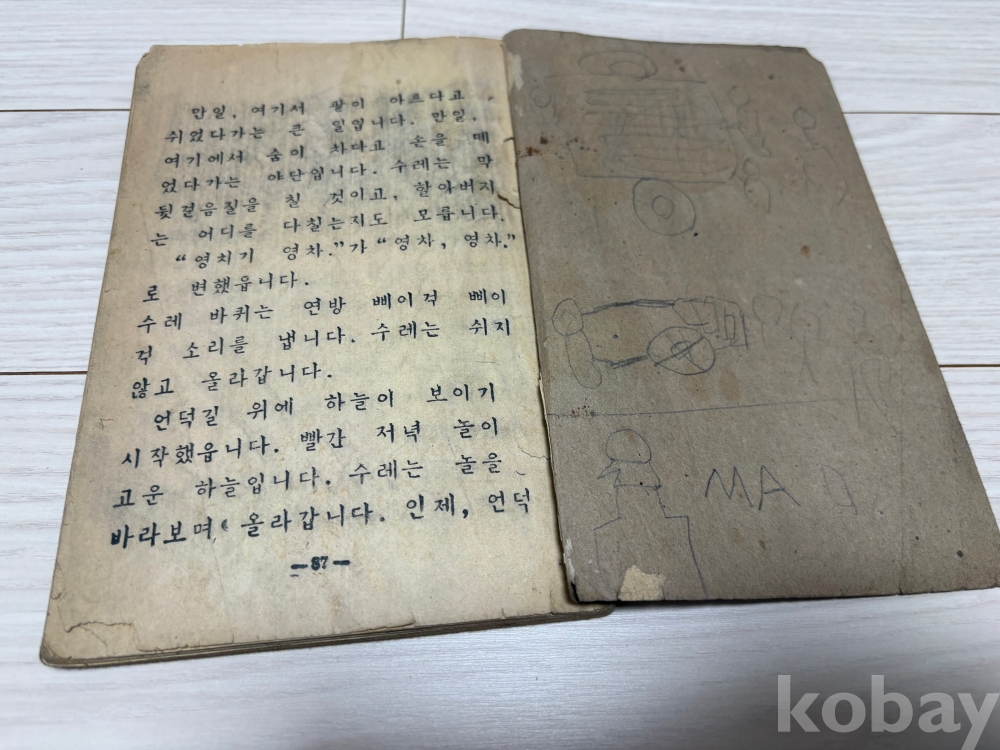 만일, 여기서 팔이 아프다고
쉬었다가는 큰 일입니다. 만일,
여기에서 숨이 차다고 손을 떼
었다가는 야단입니다. 수레는 막
뒷걸음질을 칠 것이고, 할아버지
는 어디를 다칠는지도 모릅니다.
“영치기 영차.”가 “영차, 영차.”
로 변했읍니다.
수레 바퀴는 연방 삐이걱 삐이
걱 소리를 냅니다. 수레는 쉬지
않고 올라갑니다.
언덕길 위에 하늘이 보이기
시작했읍니다. 빨간 저녁 놀이
고운 하늘입니다. 수레는 놀을
바라보며 올라갑니다. 인제, 언덕
—87—
MA
kobay